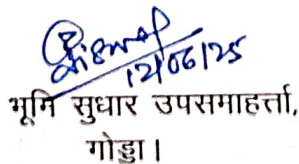 12/06/25
भूमि सुधार उपसमाहर्त्ता,
गोड्डा।